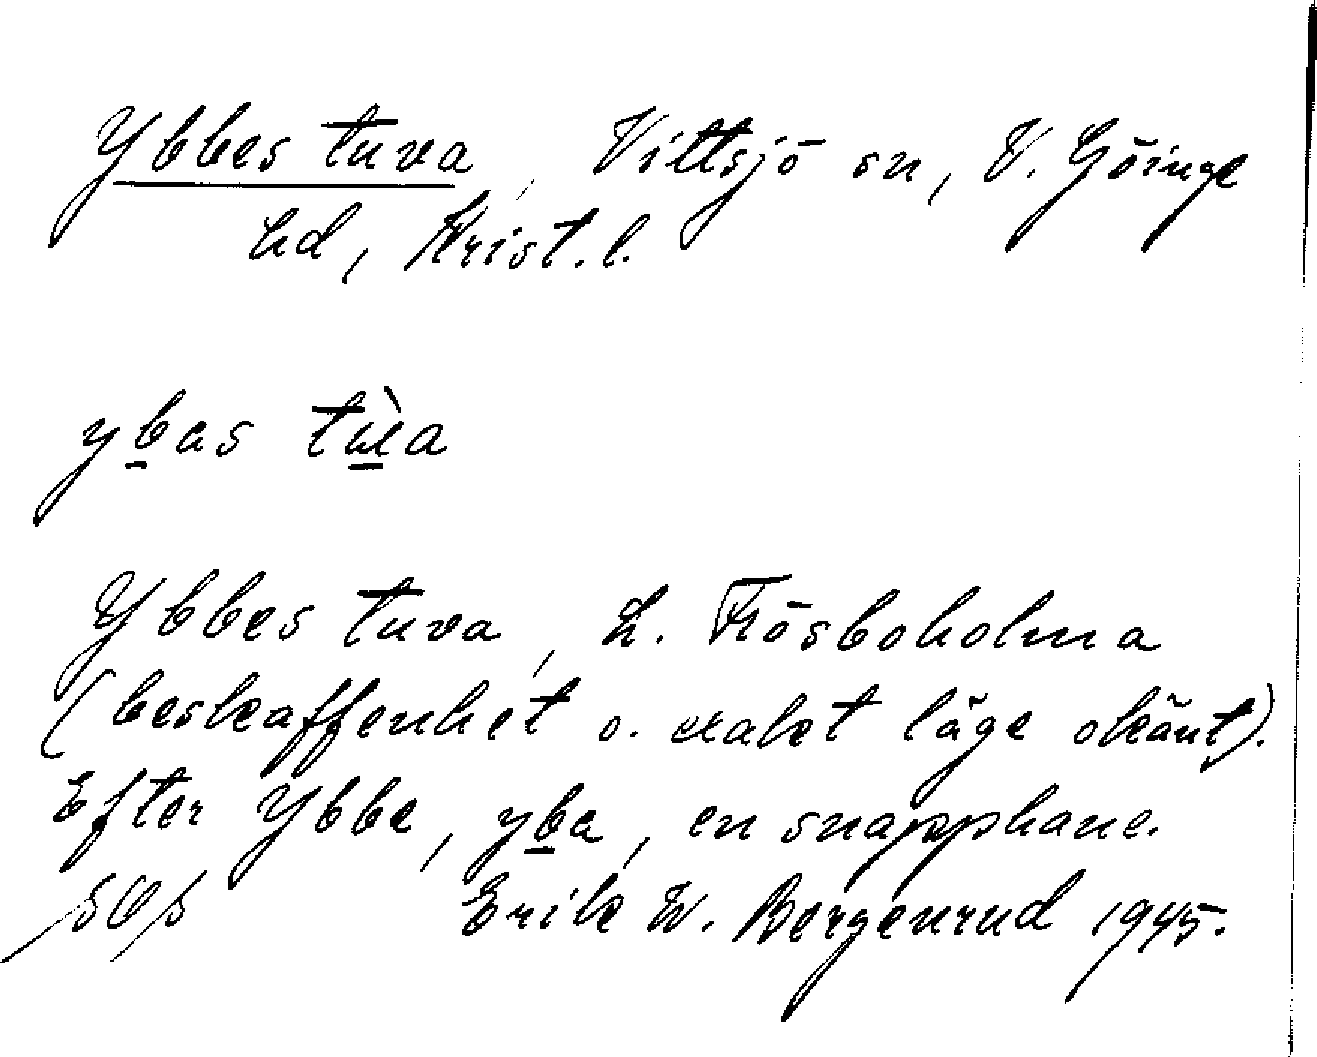 Ybbes tuva, Vittsjö sn, V. Göinge
hd, Krist. l.
ybas tùa
Ybbes tuva, L. Frösboholma
(beskaffenhet o. exakt läge okänt).
Efter Ybbe, yba, en snapphane.
Erik W. Bergenrud 1945.